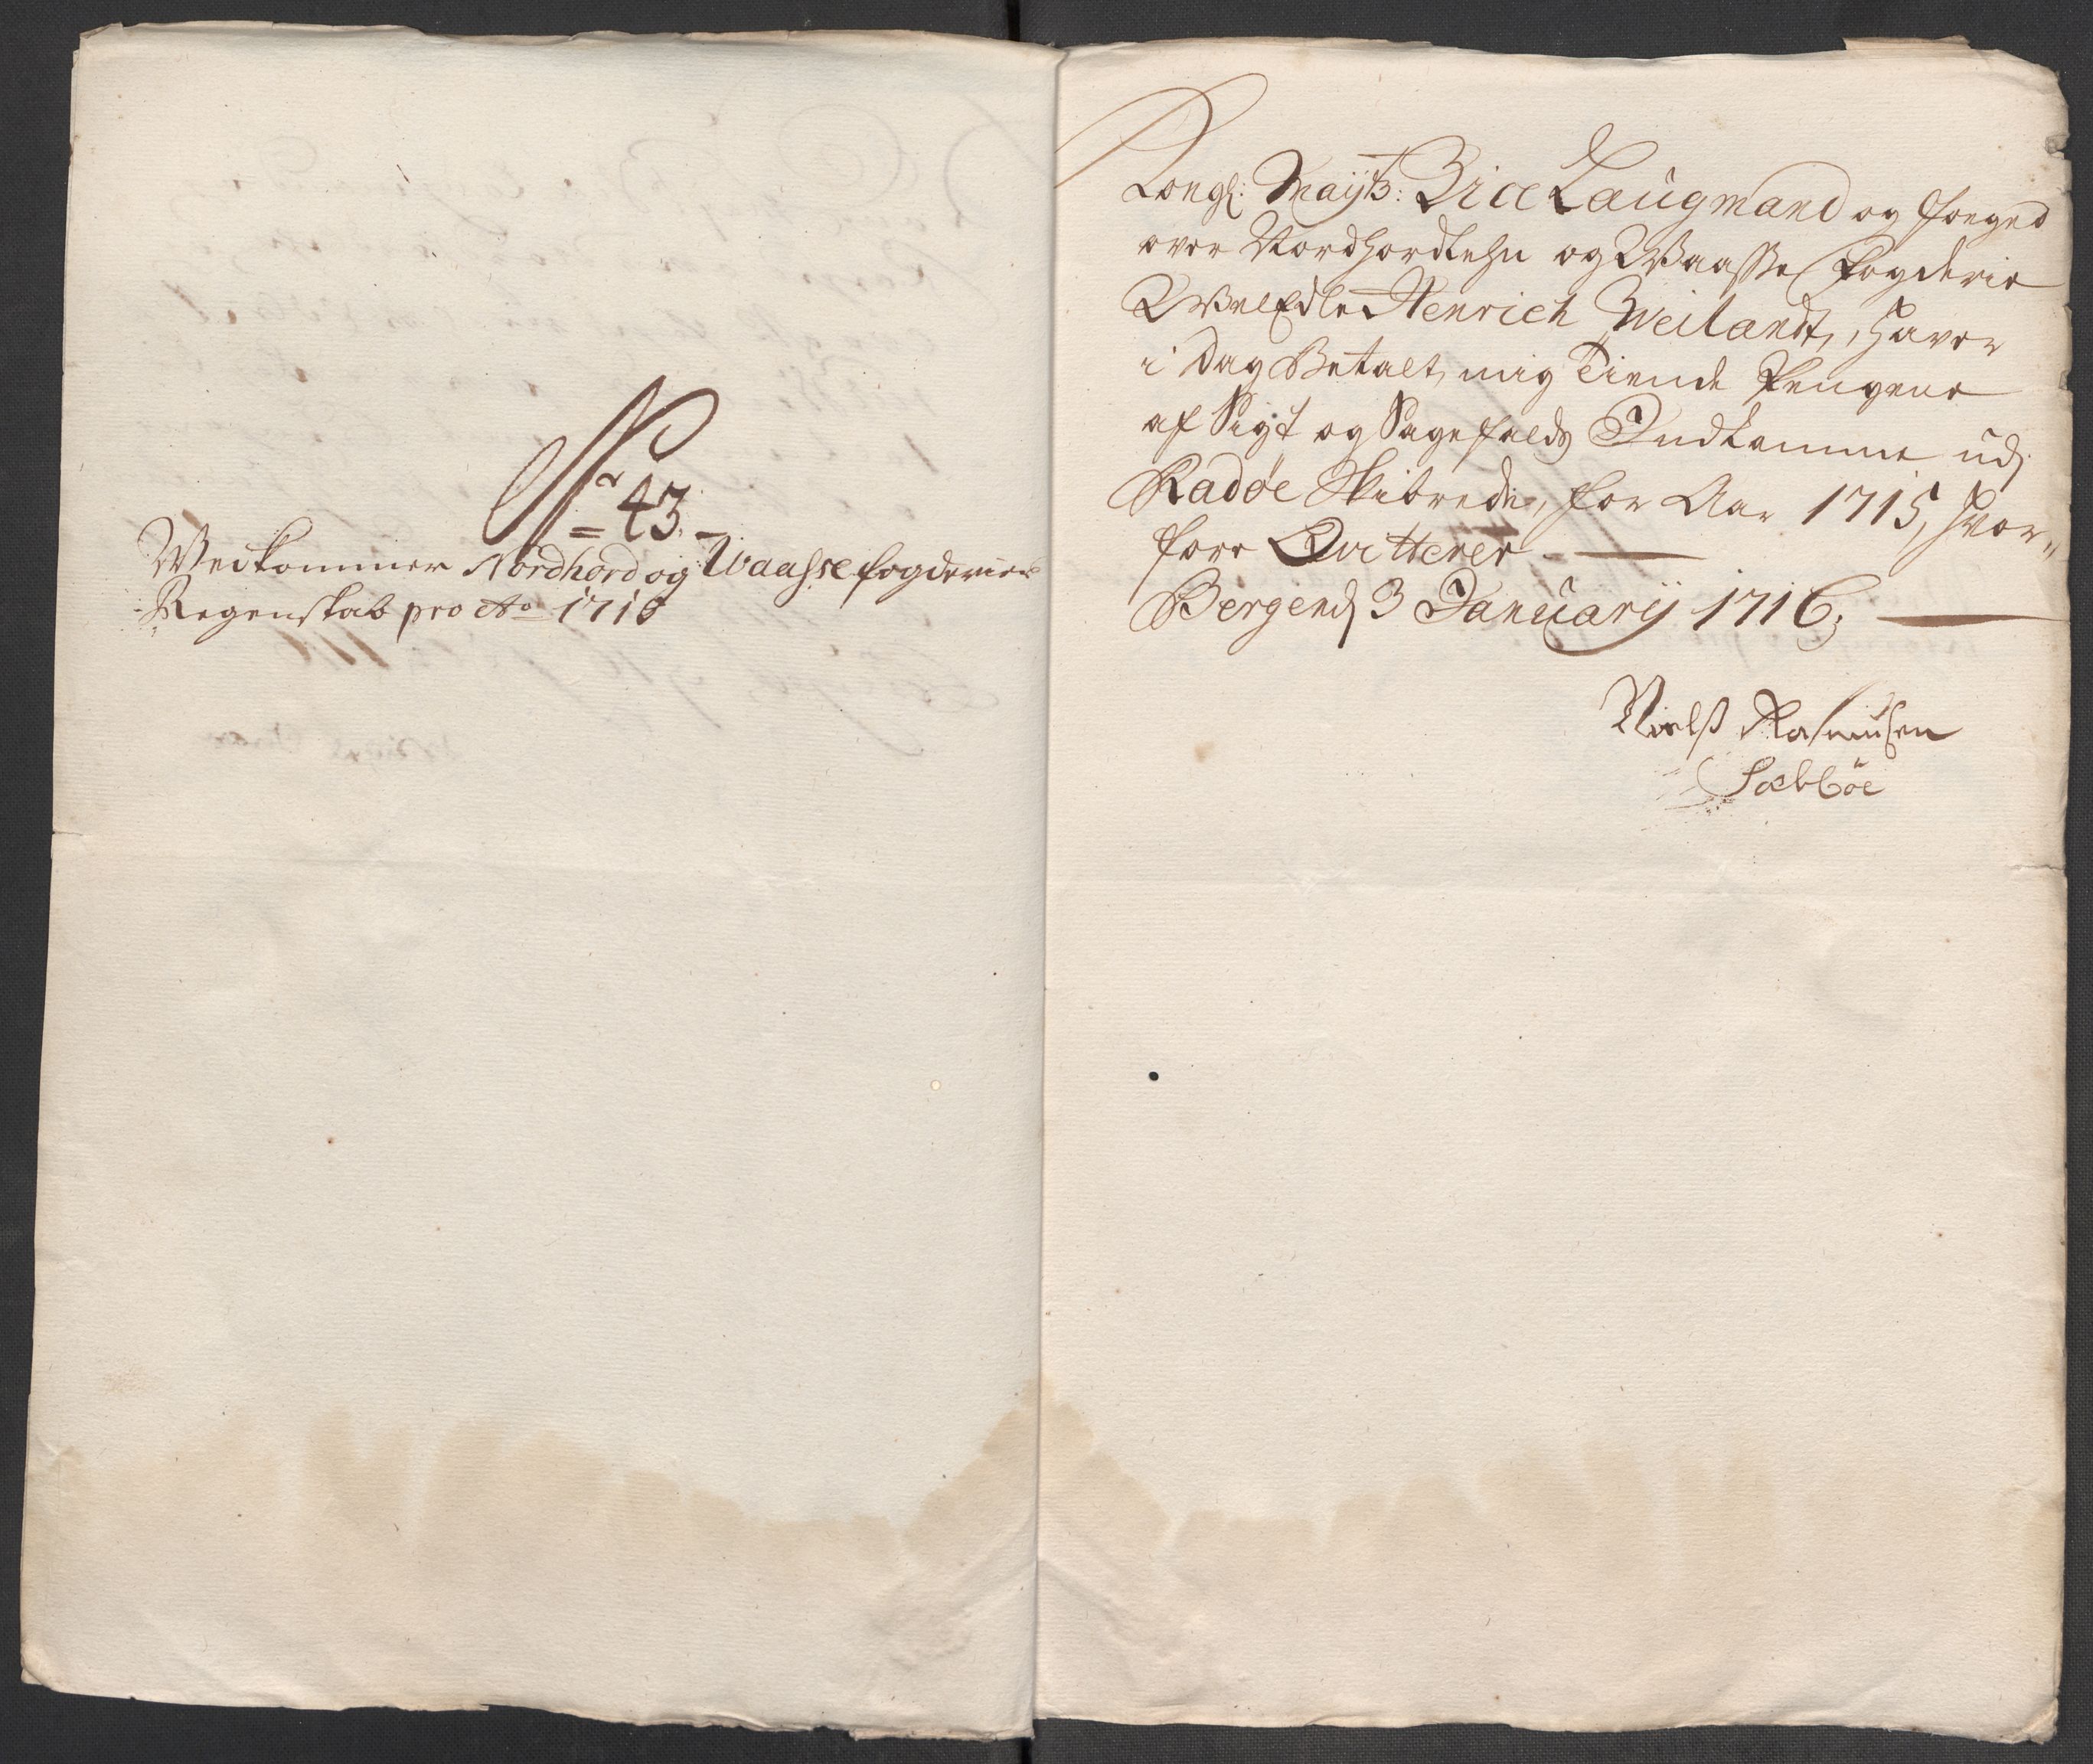 No 43.
Vedkommer Nordhord og Waasse fogderies
Regenskab pro Ao 1716
Kongl: Mayts: Vice Laugmand og foeged
over Nordhordlehn og Waasse fogderie
WelEdle Henrich Weilandt, hawer
i Dag Betalt mig Tiende Pengene
af Sigt og Sagefalds Indkomme udj
Radøe Skibrede, for Aar 1715, hvor„
fore Quitterer
Bergen d 3 Januarij 1716;
Nielß Rasmusen
Sæbbøe